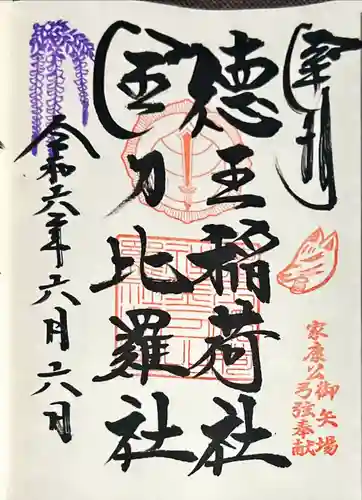 奉拝
徳王稲荷社
金刀比羅社
令和六年六月六日
家康公
御矢場
弓弦奉献